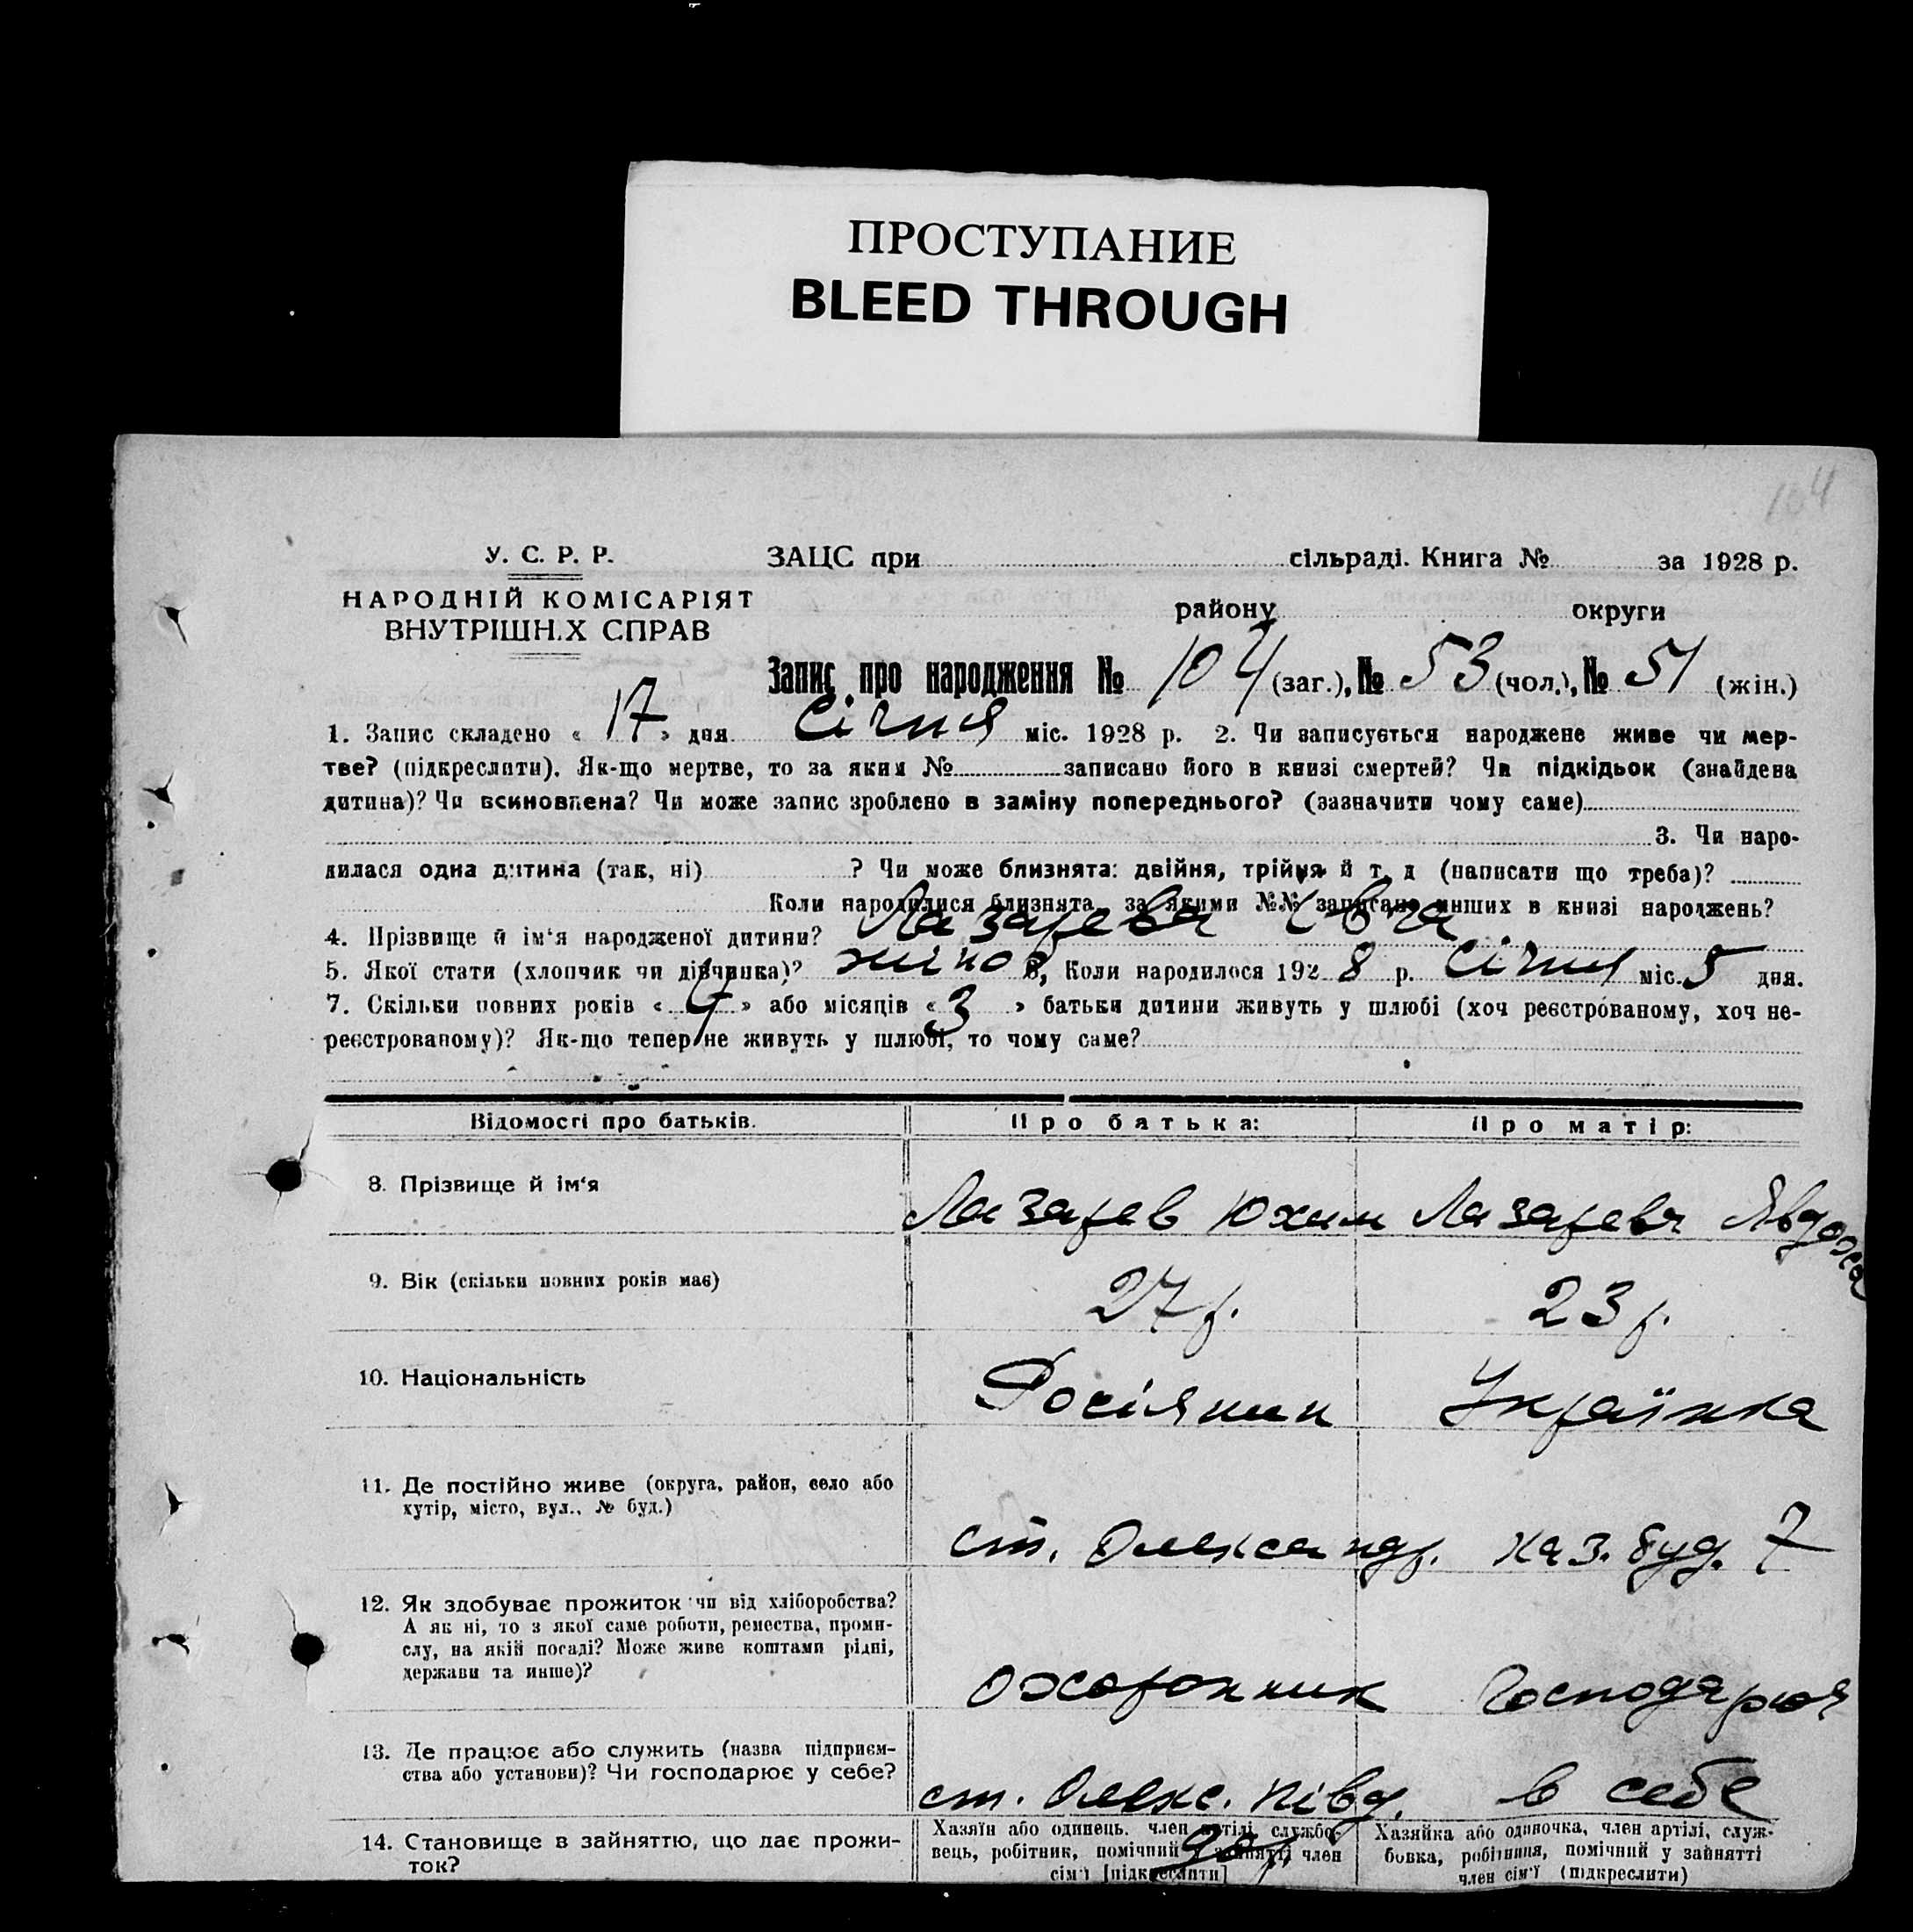 ПРОСТУПАНИЕ
BLEED THROUGH
104
У. С. Р. Р.
НАРОДНІЙ КОМІСАРІЯТ
ВНУТРІШН.Х СПРАВ
ЗАЦС при сільраді. Книга № за 1928 р.
району округи
Запис про народження № 104 (заг.), № 53 (чол.), № 51 (жін.)
1. Запис складено « 17 » дня Січня міс. 1928 р. 2. Чи записується народжене живе чи мер-
тве? (підкреслити). Як-що мертве, то за яким № записано його в книзі смертей? Чи підкідьок (знайдена
дитина)? Чи всиновлена? Чи може запис зроблено в заміну попереднього? (зазначити чому саме)
3. Чи наро-
дилася одна дитина (так, ні) ? Чи може близнята: двійня, трійня й т. д (написати що треба)?
Коли народилися близнята, за якими №№ записано инших в книзі народжень?
4. Прізвище й ім'я народженої дитини? Лазарева
5. Якої стати (хлопчик чи дівчинка)? жіно 6, Коли народилося 1928 р. Січня міс. 5 дня.
7. Скільки повних років « » або місяців « 3 » батьки дитини живуть у шлюбі (хоч реєстрованому, хоч не-
реєстрованому)? Як-що тепер не живуть у шлюбі, то чому саме?
Відомості про батьків. Про батька: Про матір:
8. Прізвище й ім'я Лазарев Юхим Лазарева Явдоха
9. Вік (скільки повних років має) 27 р. 23 р.
10. Національність Росіянин Українка
11. Де постійно живе (округа, район, село або
хутір, місто, вул., № буд.)
ст. Олександр. каз. буд. 7
12. Як здобуває прожиток чи від хліборобства?
А як ні, то з якої саме роботи, ремества, проми-
слу, на якій посаді? Може живе коштами рідні,
держави та инше)?
охоронник Господарюя
13. Де працює або служить (назва підприєм-
ства або установи)? Чи господарює у себе?
ст. Олекс. Півд. в себе
14. Становище в зайняттю, що дає прожи-
ток?
Хазяїн або одинець, член артілі, службо-
вець, робітник, помічний у зайнятті член
сім'ї [підкреслити]
Хазяйка або одиночка, член артілі, служ-
бовка, робітниця, помічний у зайнятті
член сім'ї (підкреслити)